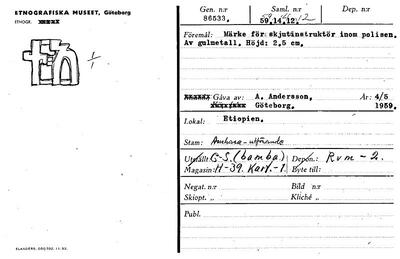 ETNOGRAFISKA MUSEET, Göteborg
ETNOGR.
1/1
Gen. n:r
86533.
Saml. n:r
59.14.12
Dep. n:r
Föremål: Märke för skjutinstruktör inom polisen.
Av gulmetall. Höjd: 2,5 cm.
Gåva av: A. Andersson,
Göteborg.
År: 4/5
1959.
Lokal: Etiopien.
Stam: Amhara-utförande
Utställt: G-S. (bamba)
Depon.: Rvm - 2.
Magasin: H-39. Kart.-1.
Byte till:
Negat. n:r
Bild n:r
Skiopt. »
Kliché »
Publ.
ELANDERS, GBG 702. 11. 53.